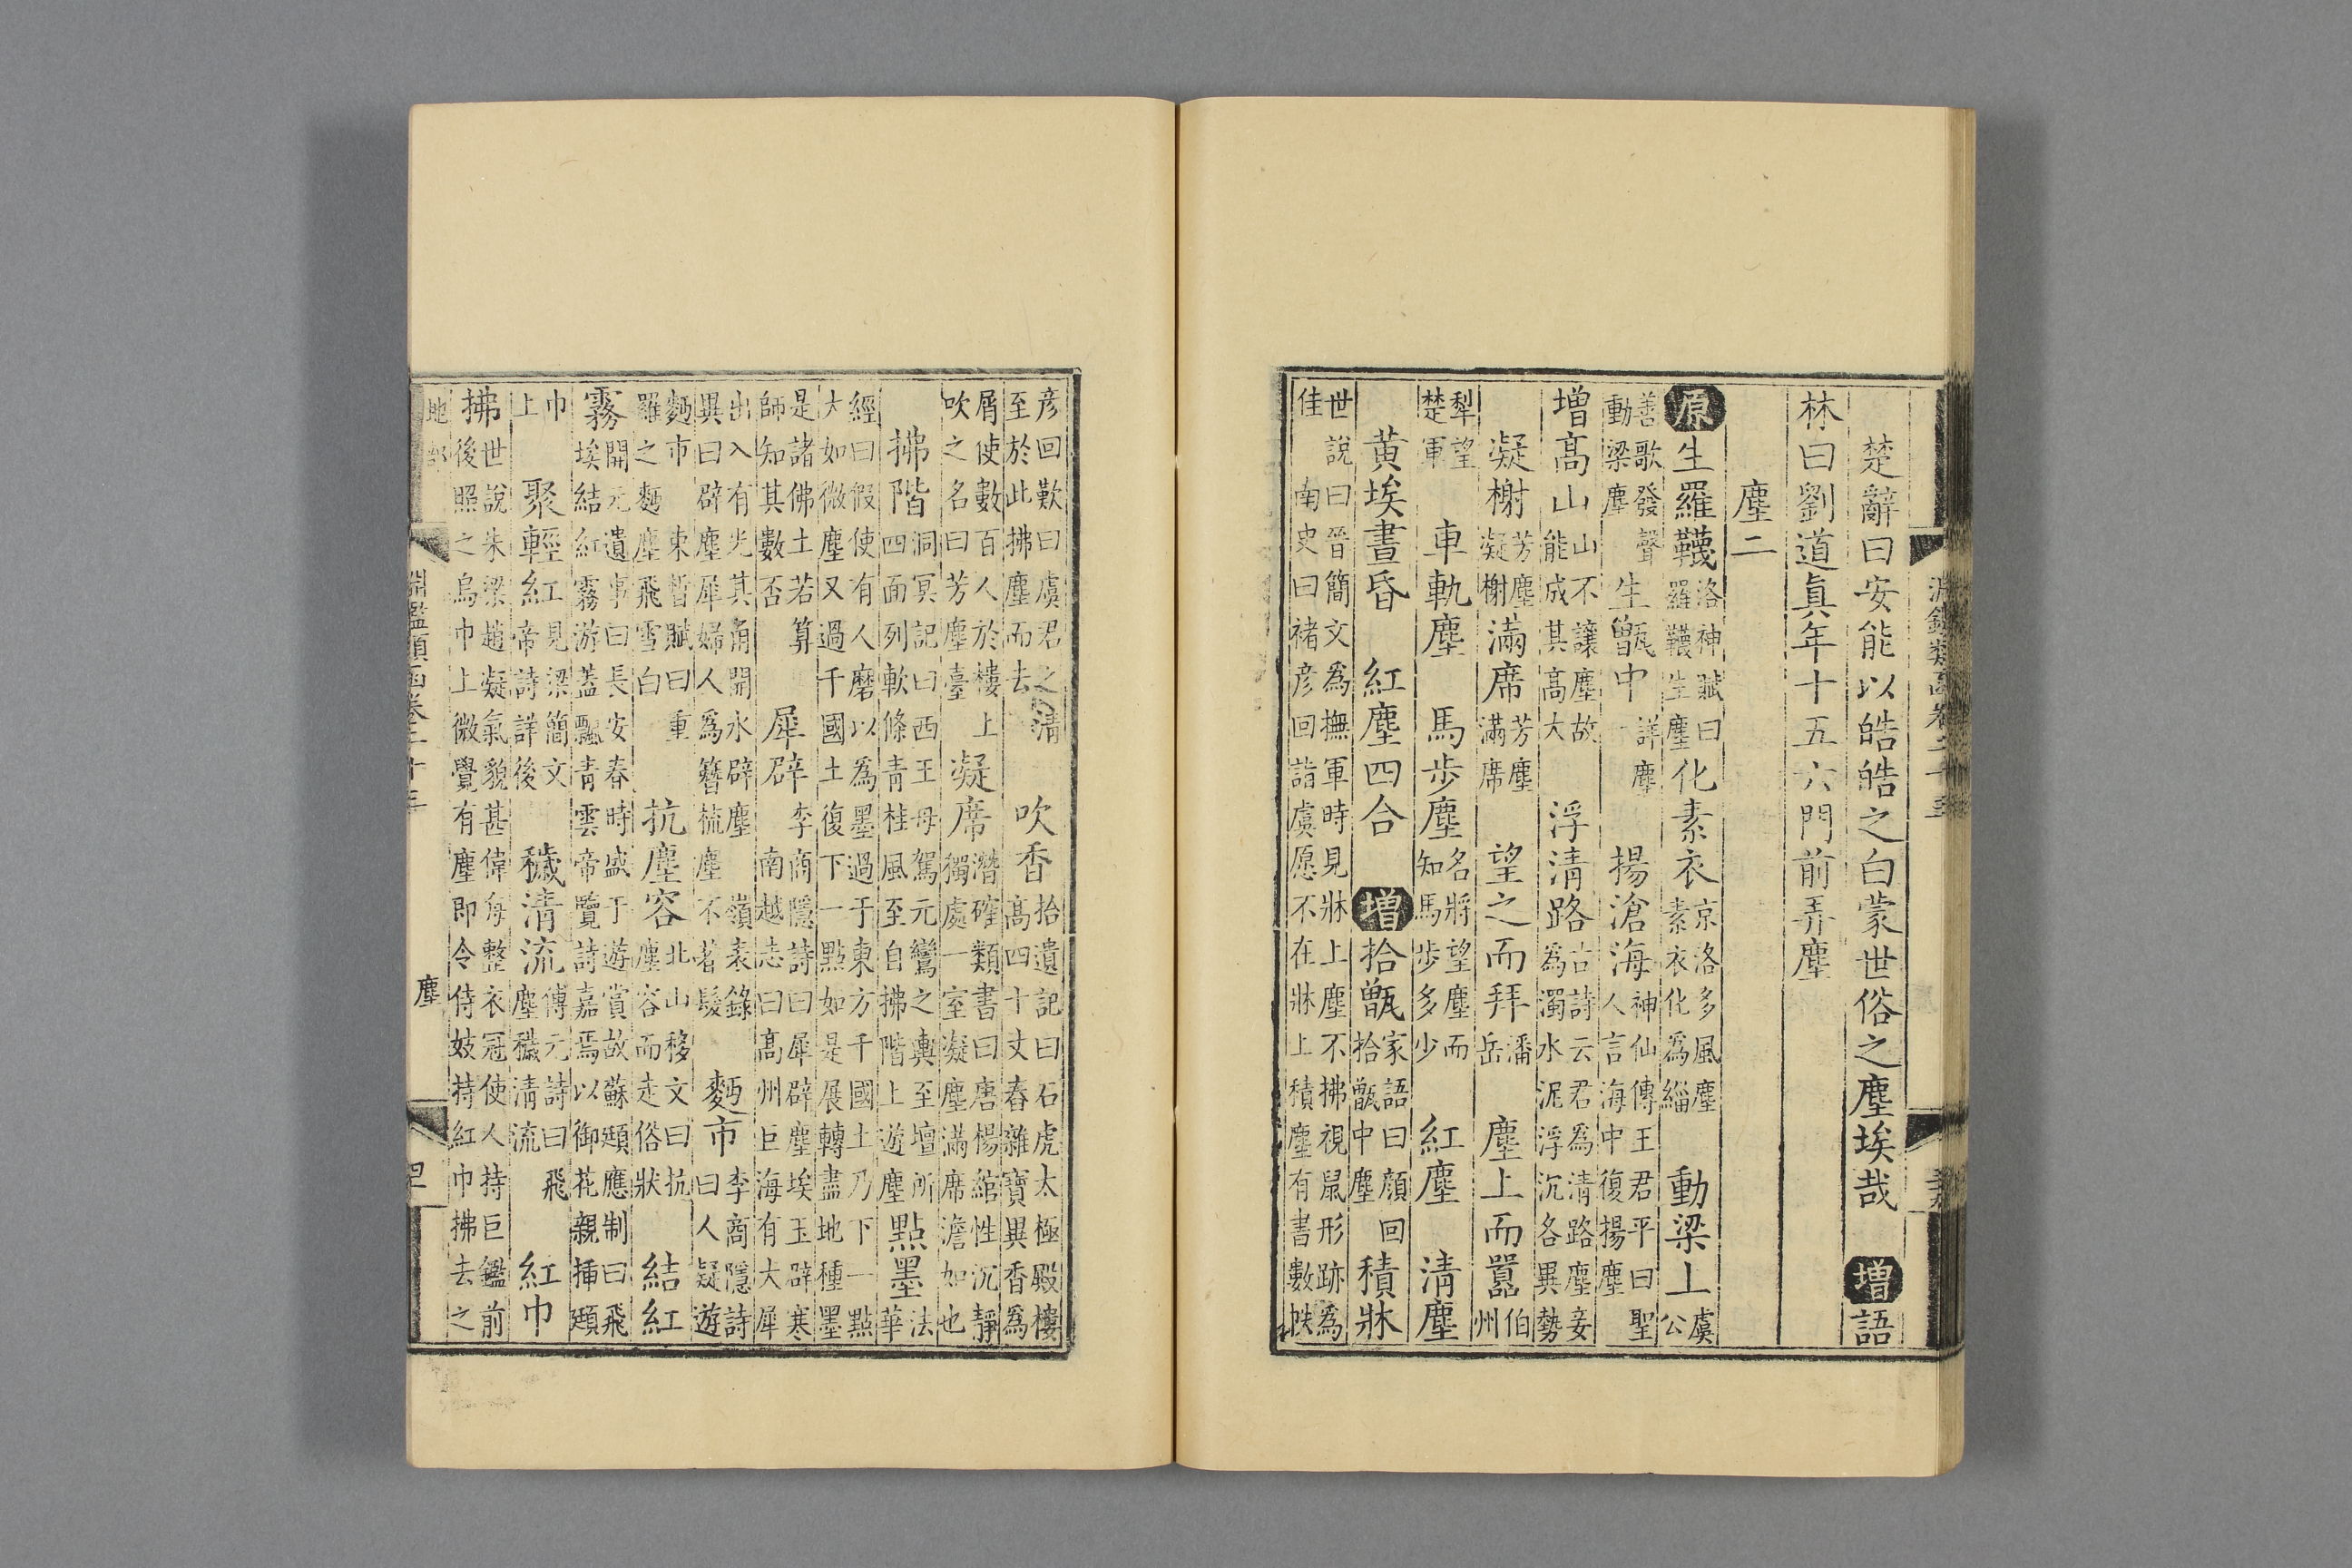 楚辭曰安能以皓皓之白蒙世俗之塵埃哉 增語
林曰劉道眞年十五六門前弄塵
塵二
原生羅韈洛神賦曰羅韈生塵化素衣京洛多風塵素衣化爲緇 動梁上虞公
善歌發聲動梁塵 生甑中詳塵一 揚滄海神仙傳王君平曰聖人言海中復揚塵
增高山山不讓塵故能成其高大 浮淸路古詩云君爲淸路塵妾爲濁水泥浮沉各異勢
凝榭芳塵凝榭滿席芳塵滿席 望之而拜潘岳 塵上而嚻伯州
犁望楚軍 車軌塵 馬步塵名將望塵而知馬步多少 紅塵 淸塵
黃埃晝昏 紅塵四合 增拾甑家語曰顔回拾甑中塵 積牀
世說曰晉簡文爲撫軍時見牀上塵不拂視鼠形跡爲佳 南史曰褚彥回詣虞愿不在牀上積塵有書數帙
彥回歎曰虞君之淸至於此拂塵而去 吹香拾遺記曰石虎太極殿樓高四十丈春雜寶異香爲
屑使數百人於樓上吹之名曰芳塵臺 凝席潛確類書曰唐楊綰性沉靜獨處一室凝塵滿席澹如也
拂階洞冥記曰西王母駕元鸞之輿至壇所四面列軟條靑桂風至自拂階上遊塵點墨法華
經曰假使有人磨以爲墨過于東方千國土乃下一點大如微塵又過千國土復下一點如是展轉盡地種墨
是諸佛土若算師知其數否 犀辟李商隱詩曰犀辟塵埃玉辟寒南越志曰高州巨海有大犀
出入有光其角開水辟塵 嶺表錄異曰辟塵犀婦人爲簪梳塵不著髮 麫市李商隱詩曰人疑遊
麫市 束晳賦曰重羅之麫塵飛雪白 抗塵容北山移文曰抗塵容而走俗狀 結紅
霧開元遺事曰長安春時盛于遊賞故蘇頲應制曰飛埃結紅霧游蓋飄靑雲帝覽詩嘉焉以御花親揷頲
巾上 聚輕紅見梁簡文帝詩詳後 穢淸流傅元詩曰飛塵穢淸流 紅巾
拂世說朱梁趙凝氣貌甚偉每整衣冠使人持巨鑑前後照之烏巾上微覺有塵即令侍妓持紅巾拂去之
地部
塵